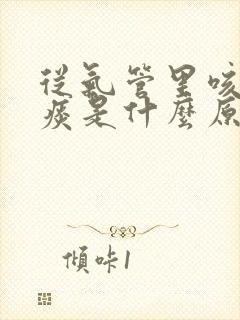 從氣管里咳
痰是什麼原
傾咔1